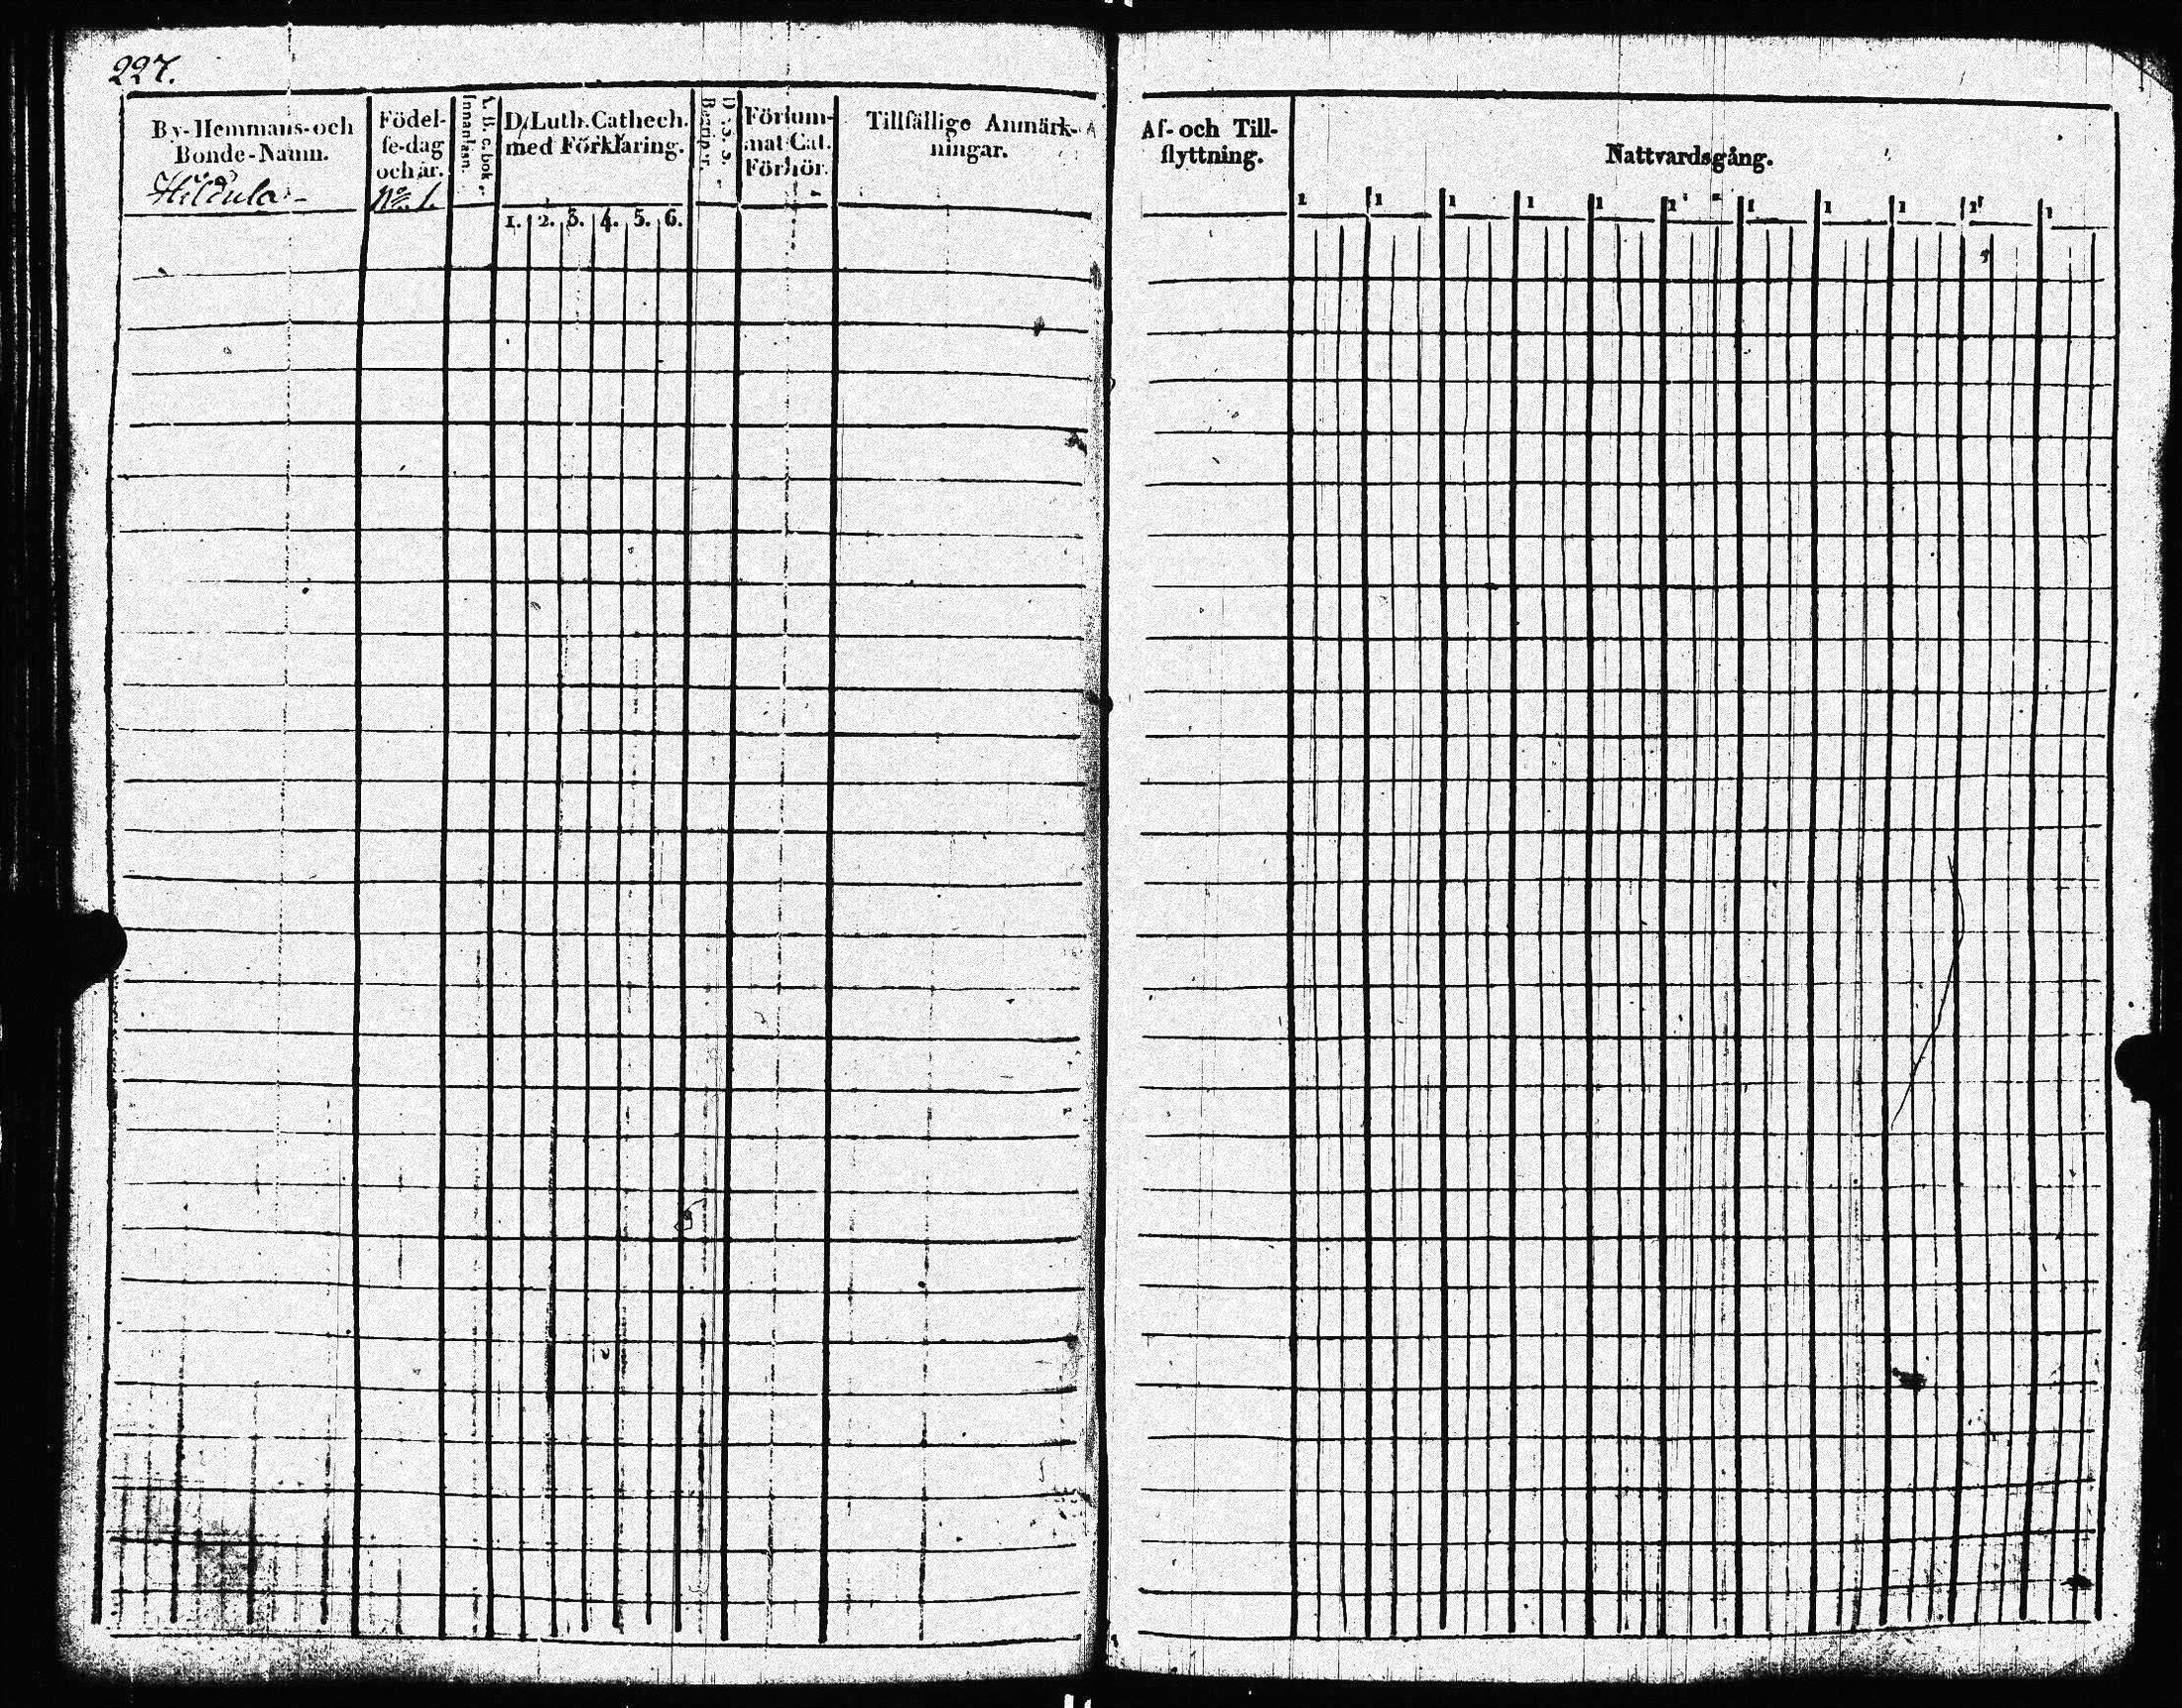 227.
By-Hemmans-och
Bonde-Namn.
Födel-
se-dag
och år.
No 1.
A.B.C.bok.
Innanläsn.
D. Luth. Cathech.
med Förklaring.
1. 2. 3. 4. 5. 6.
Försum-
mat Cat.
Förhör.
Tillfällige Anmärk-
ningar.
Af- och Till-
flyttning.
Nattvardsgång.
1 1 1 1 1 1 1 1 1 1 1